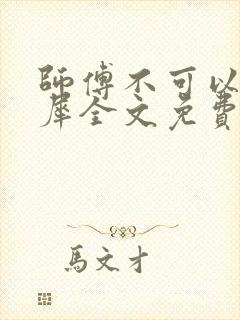 師傅不可以
犀全文免費
馬文才